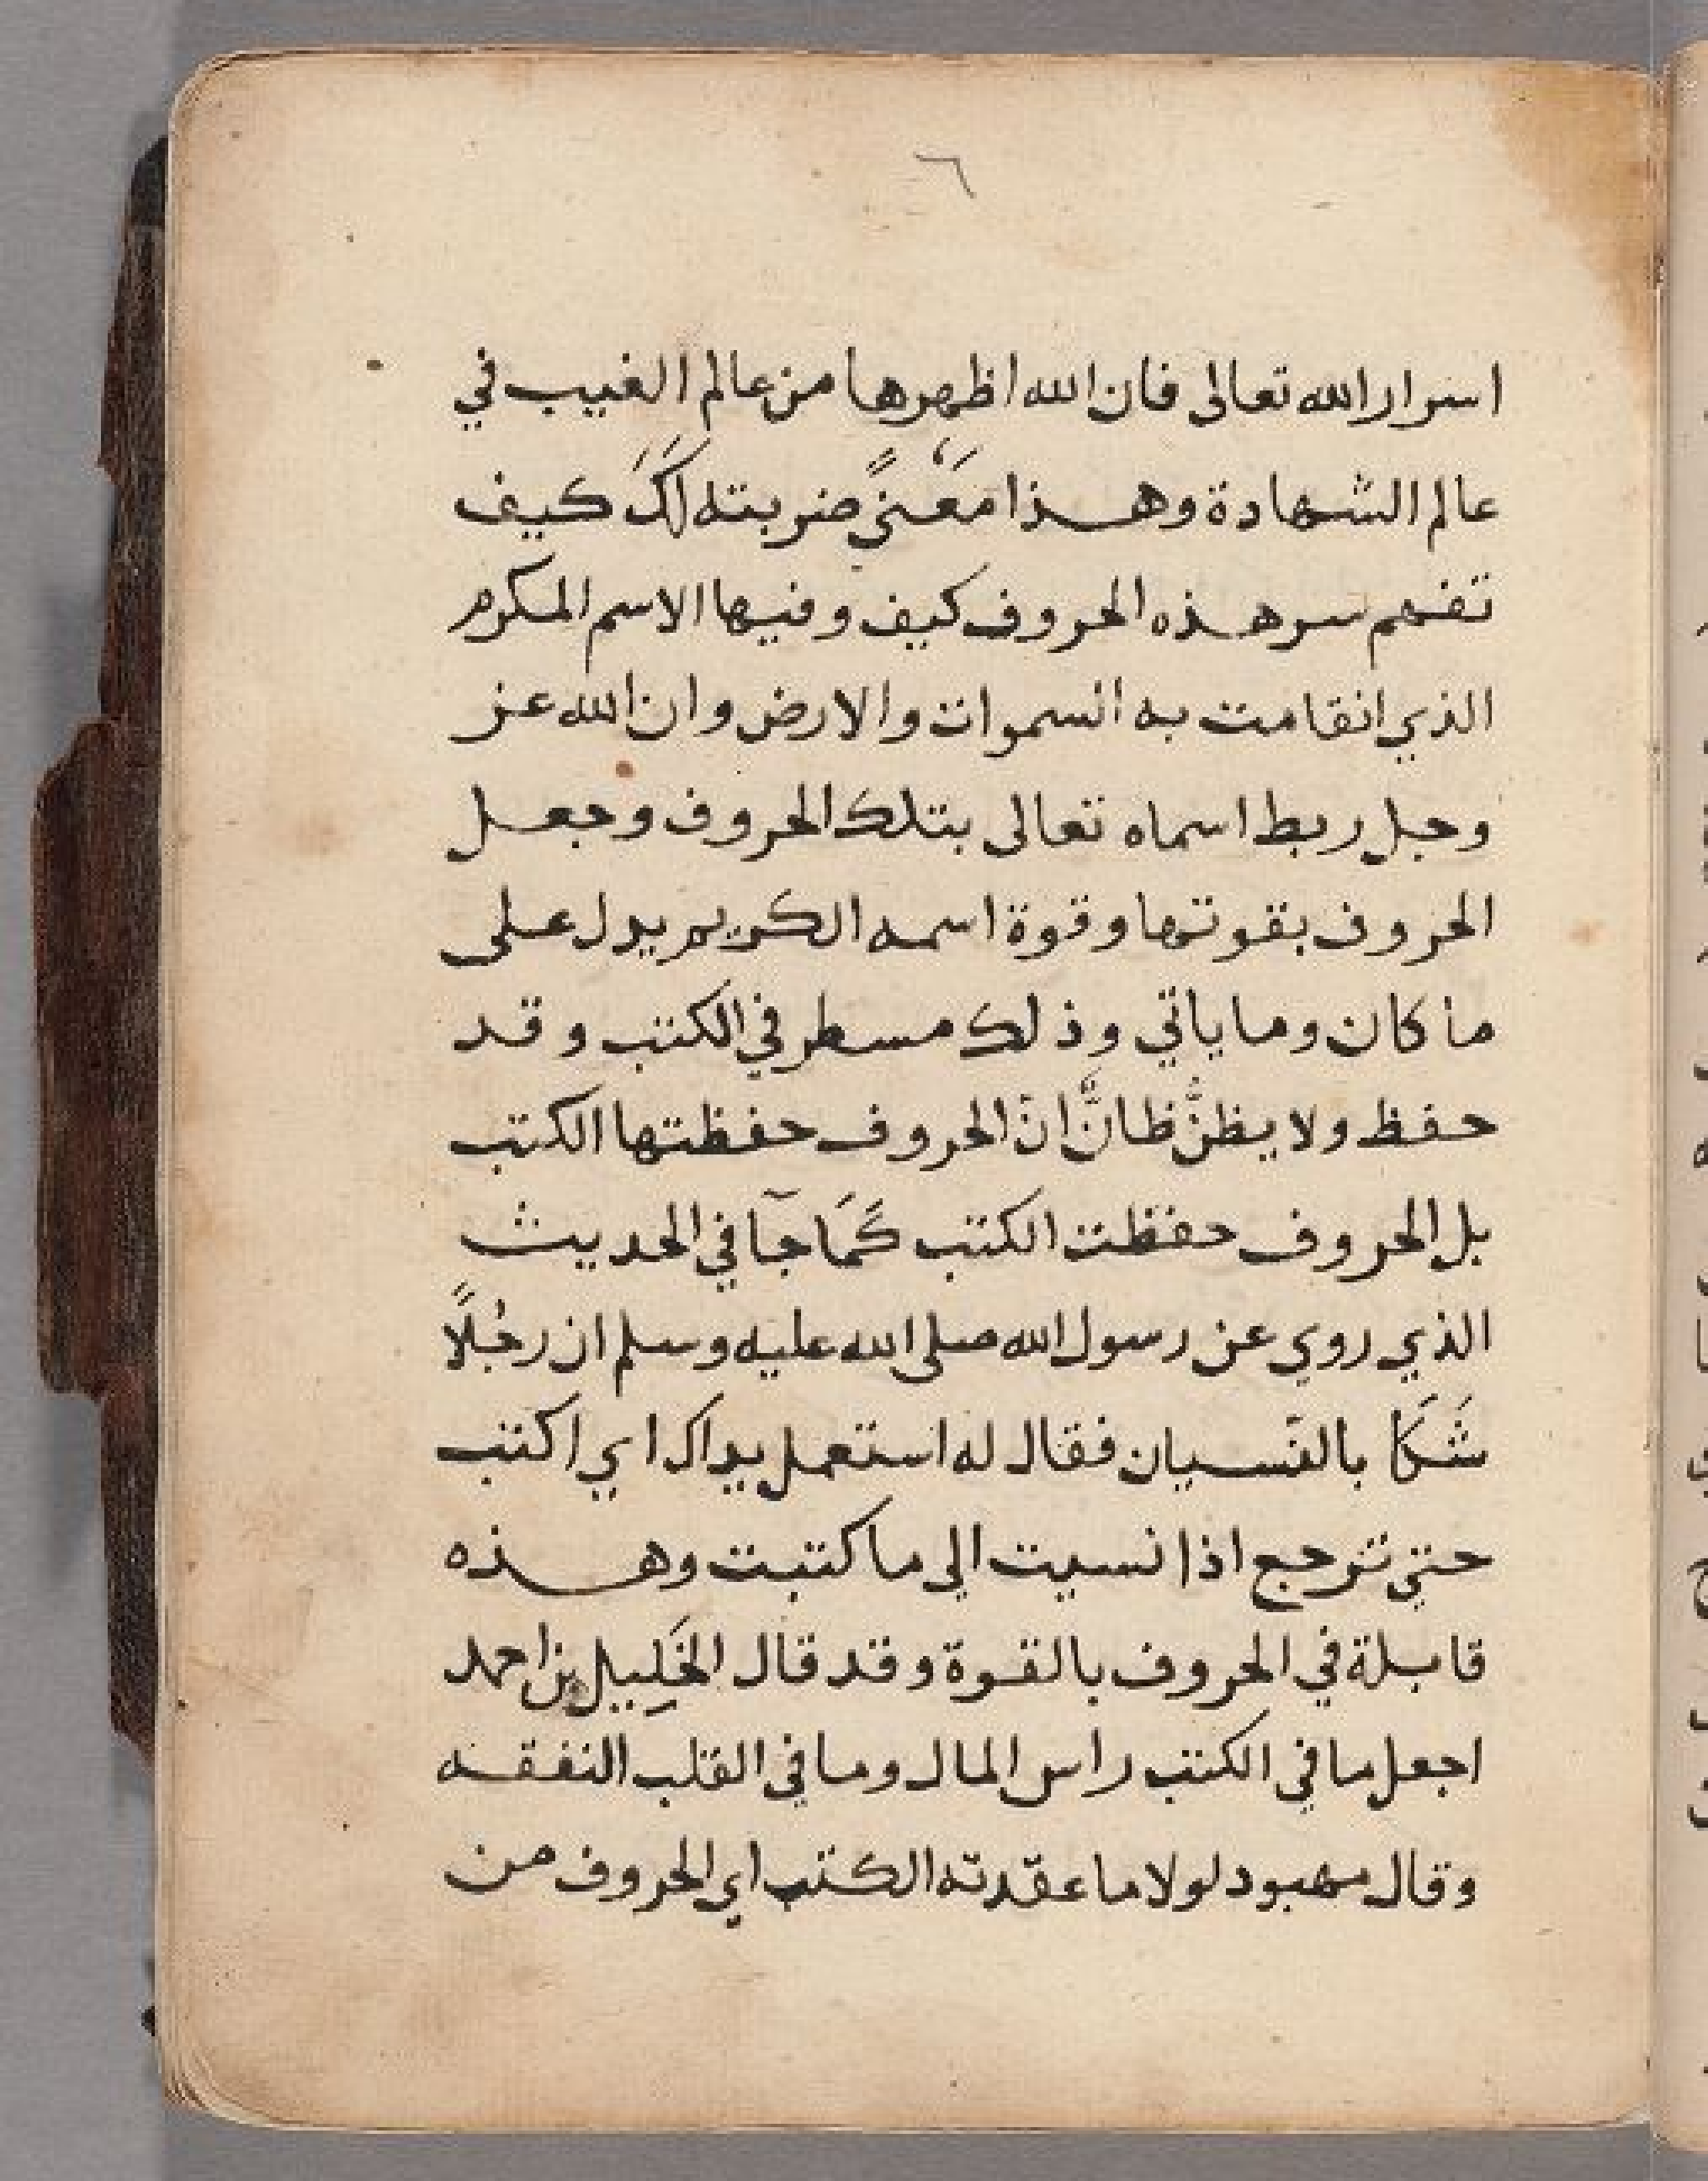 ٦
اسرار الله تعالى فان الله اظهرها من عالم الغيب في
عالم الشهادة وهذا مَعْنيً ضربته لَكَ كيف
تفهم سر هذه الحروف كيف وفيها الاسم المكرم
الذي انقامت به السموات والارض وان الله عز
وجل ربط اسماه تعالى بتلك الحروف وجعل
الحروف بقوتها وقوة اسمه الكريم يدل على
ما كان وما ياتي وذلك مسطر في الكتب وقد
حفظ ولا يظنُّ ظانٌّ انَ الحروف حفظتها الكتب
بل الحروف حفظت الكتب كَمَا جآ في الحديث
الذي روي عن رسول الله صلى الله عليه وسلم ان رجُلًا
شَكَا بالنسيان فقال له استعمل يداك اي اكتب
حتي ترجع اذا نسيت الي ما كتبت وهذه
قابلة في الحروف بالقوة وقد قال الخَلِيل بن احمد
اجعل ما في الكتب راس المال وما في القلب النفقه
وقال مهبود لولا ما عقدته الكتب اي الحروف من